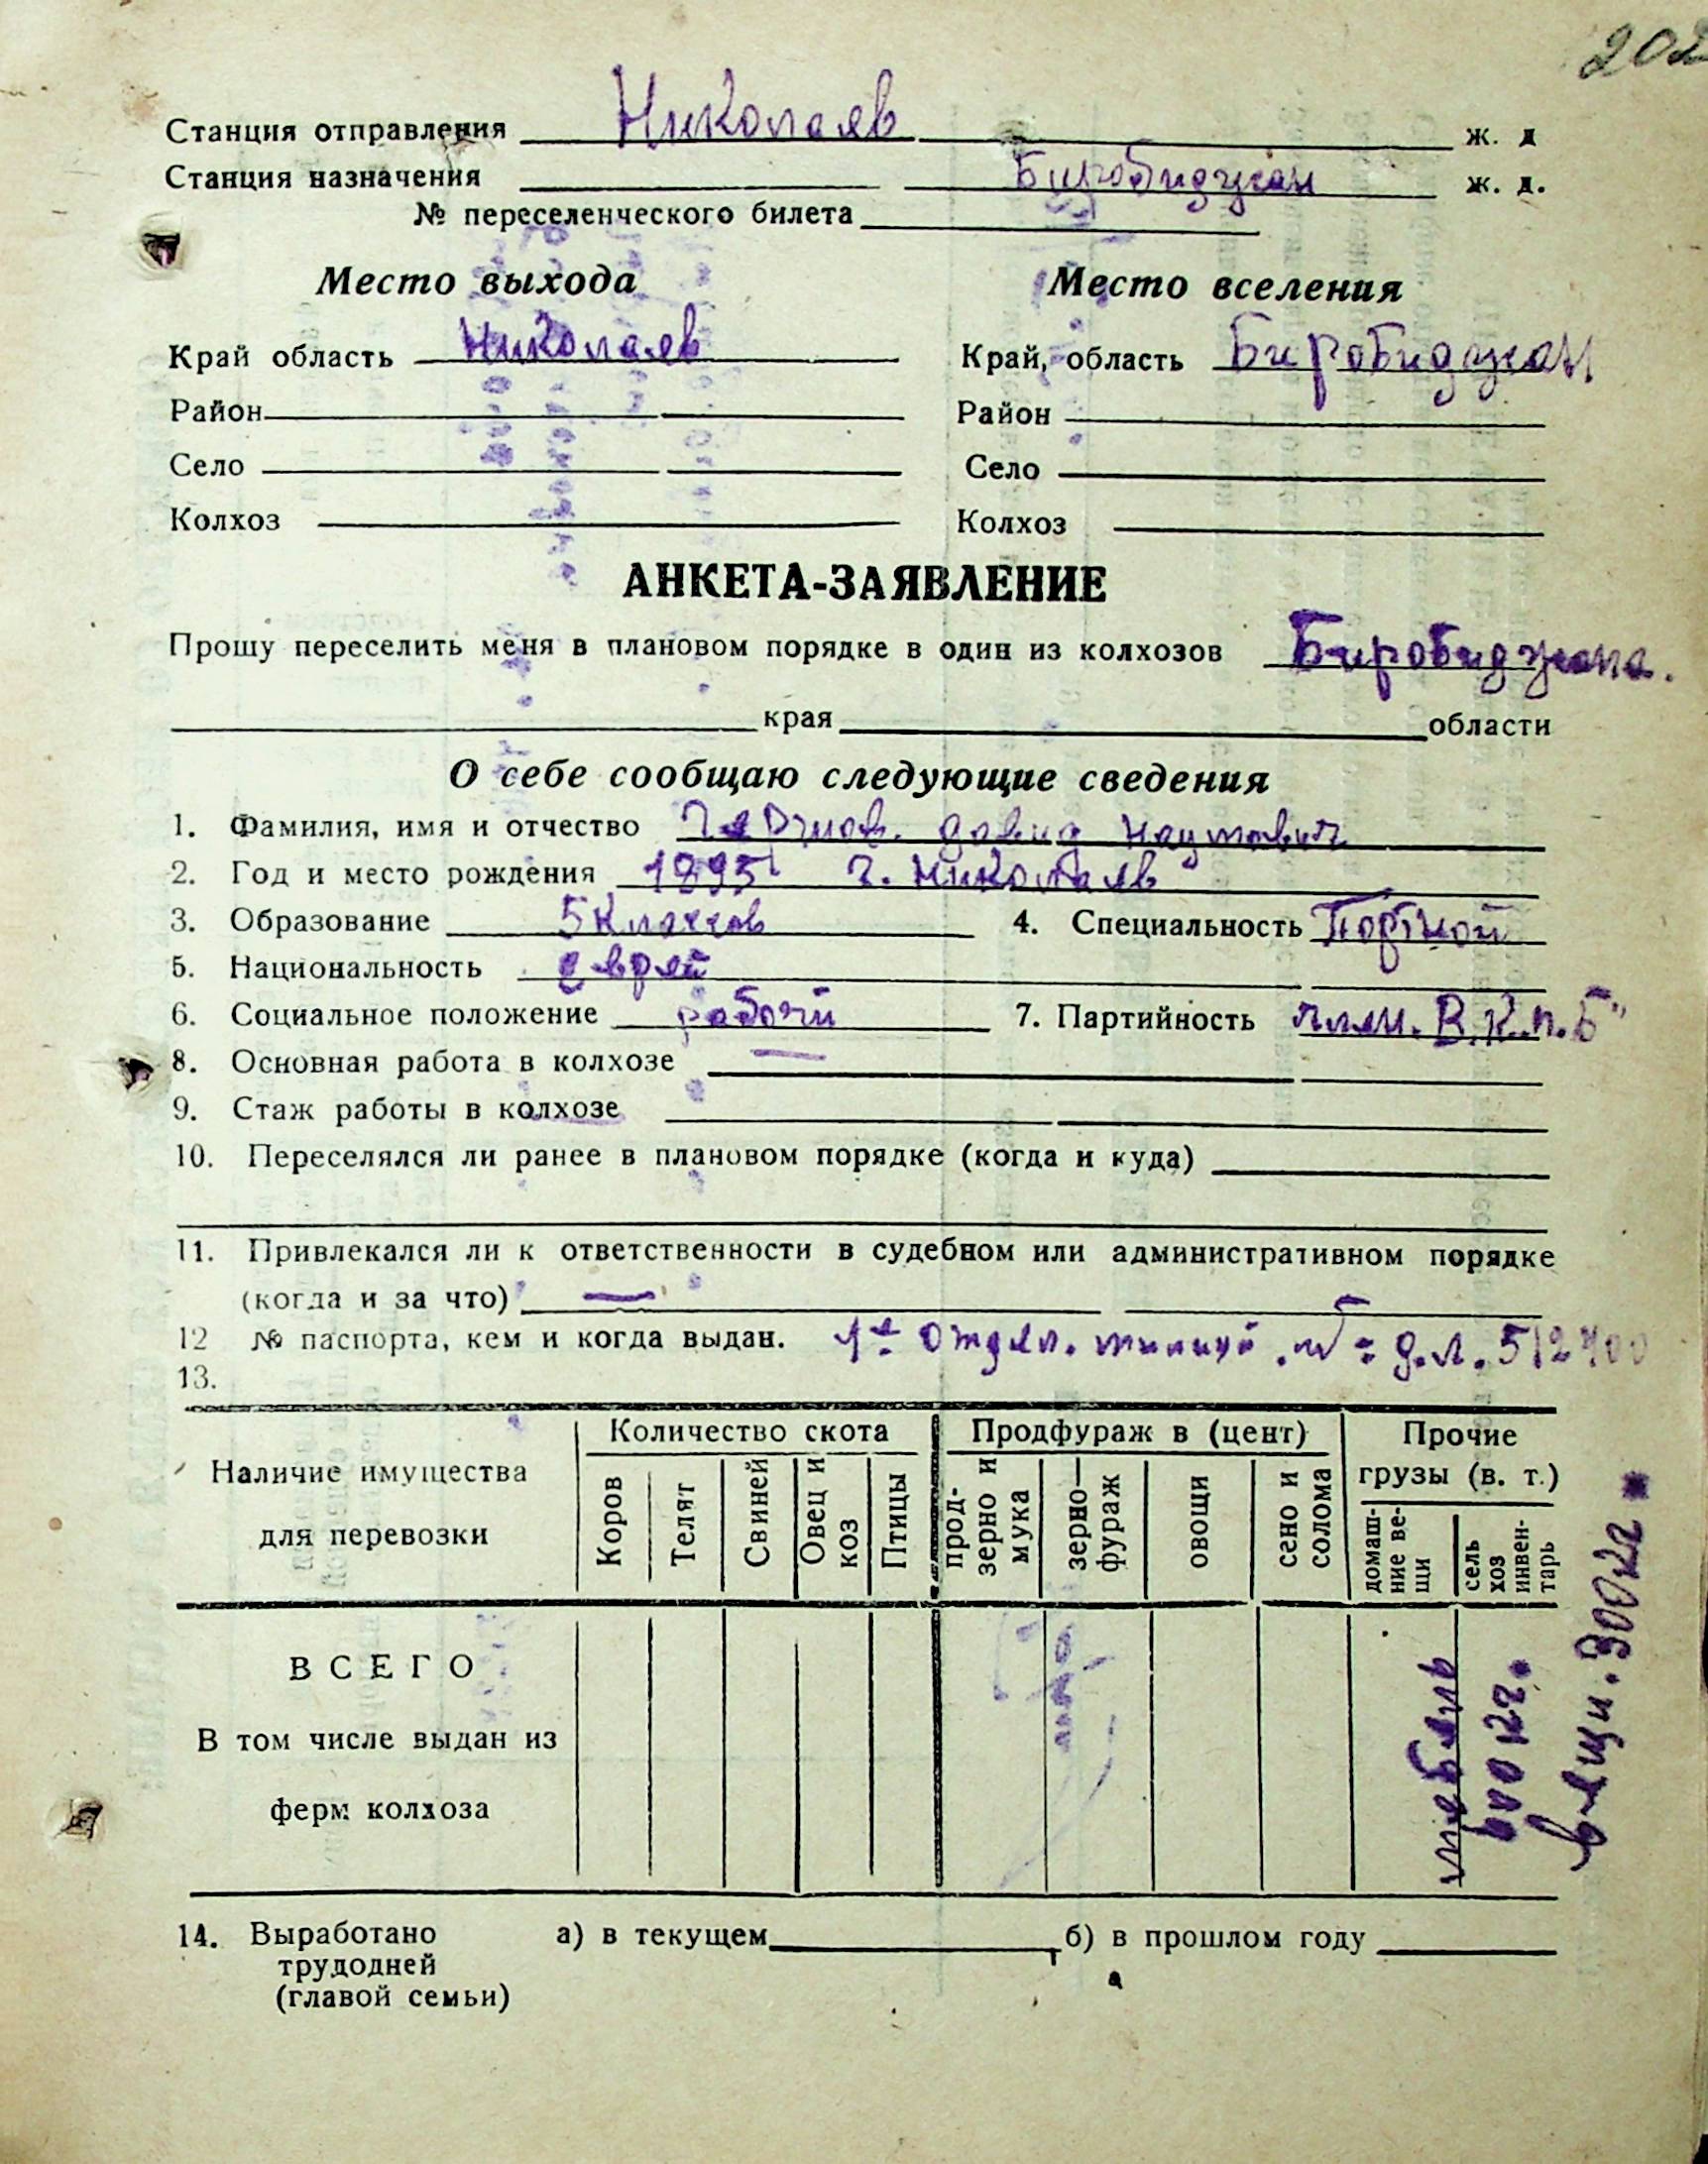 202
Станция отправления Николаев ж. д
Станция назначения Биробиджан ж. д.
№ переселенческого билета
Место выхода Место вселения
Край область Николаев Край, область Биробиджан
Район Район
Село Село
Колхоз Колхоз
АНКЕТА-ЗАЯВЛЕНИЕ
Прошу переселить меня в плановом порядке в один из колхозов Биробиджана.
края области
О себе сообщаю следующие сведения
1. Фамилия, имя и отчество давид Наумович
2. Год и место рождения 1895 г. Николаев
3. Образование 5 классов 4. Специальность Портной
5. Национальность еврей
6. Социальное положение рабочи 7. Партийность член. В.К.П.Б"
8. Основная работа в колхозе —
9. Стаж работы в колхозе
10. Переселялся ли ранее в плановом порядке (когда и куда)
11. Привлекался ли к ответственности в судебном или административном порядке
(когда и за что) —
12 № паспорта, кем и когда выдан. 1е отдел. милиций д.л. 512400
13.
Наличие имущества для перевозки
Количество скота
Продфураж в (цент)
Прочие грузы (в. т.)
Коров
Телят
Свиней
Овец и коз
Птицы
прод-зерно и мука
зерно-фураж
овощи
сено и солома
домаш-ние ве-щи
сель хоз инвен-тарь
ВСЕГО
В том числе выдан из
ферм колхоза
мебель
600 кг.
вещи. 300 кг.
14. Выработано а) в текущем б) в прошлом году
трудодней
(главой семьи)